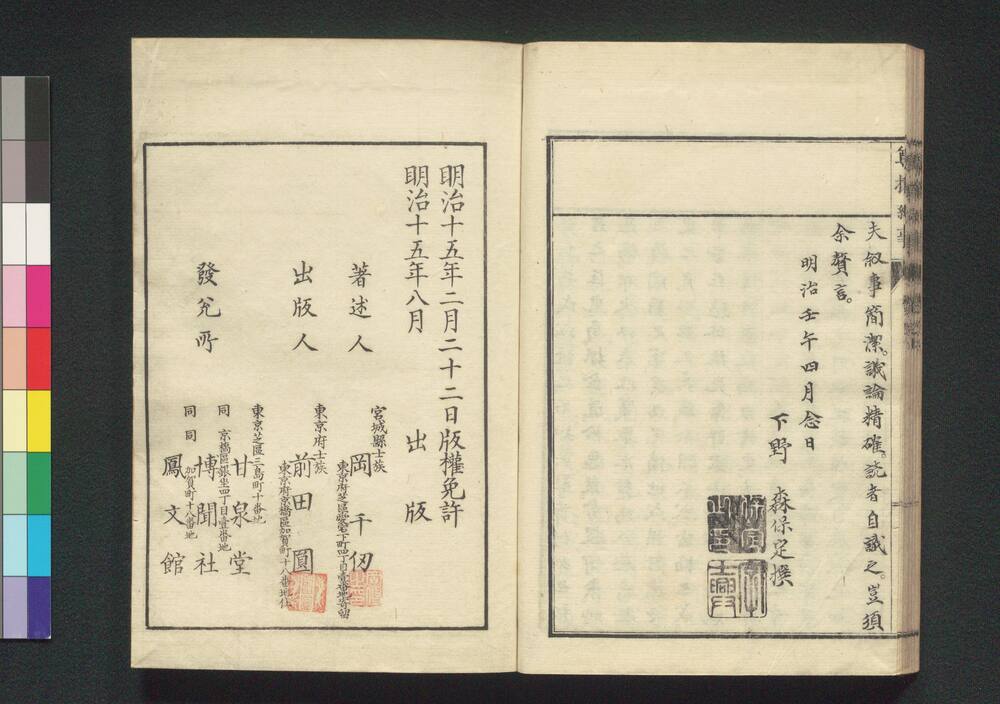 夫叙事簡潔。議論精確。読者自識之。豈須
余贅言。
明治壬午四月念日
下野 森保定撰
明治十五年二月二十二日版權免許
明治十五年八月 出版
著述人
宮城縣士族
岡千仭
東京芝區愛宕下町四丁目壹番地寄留
出版人
東京府士族
前田圓
東京府京橋區加賀町十八番地住
發兌所
東京芝區三島町十番地
甘泉堂
同 京橋區銀坐四丁目壹番地
博聞社
同 同 加賀町十八番地
鳳文館